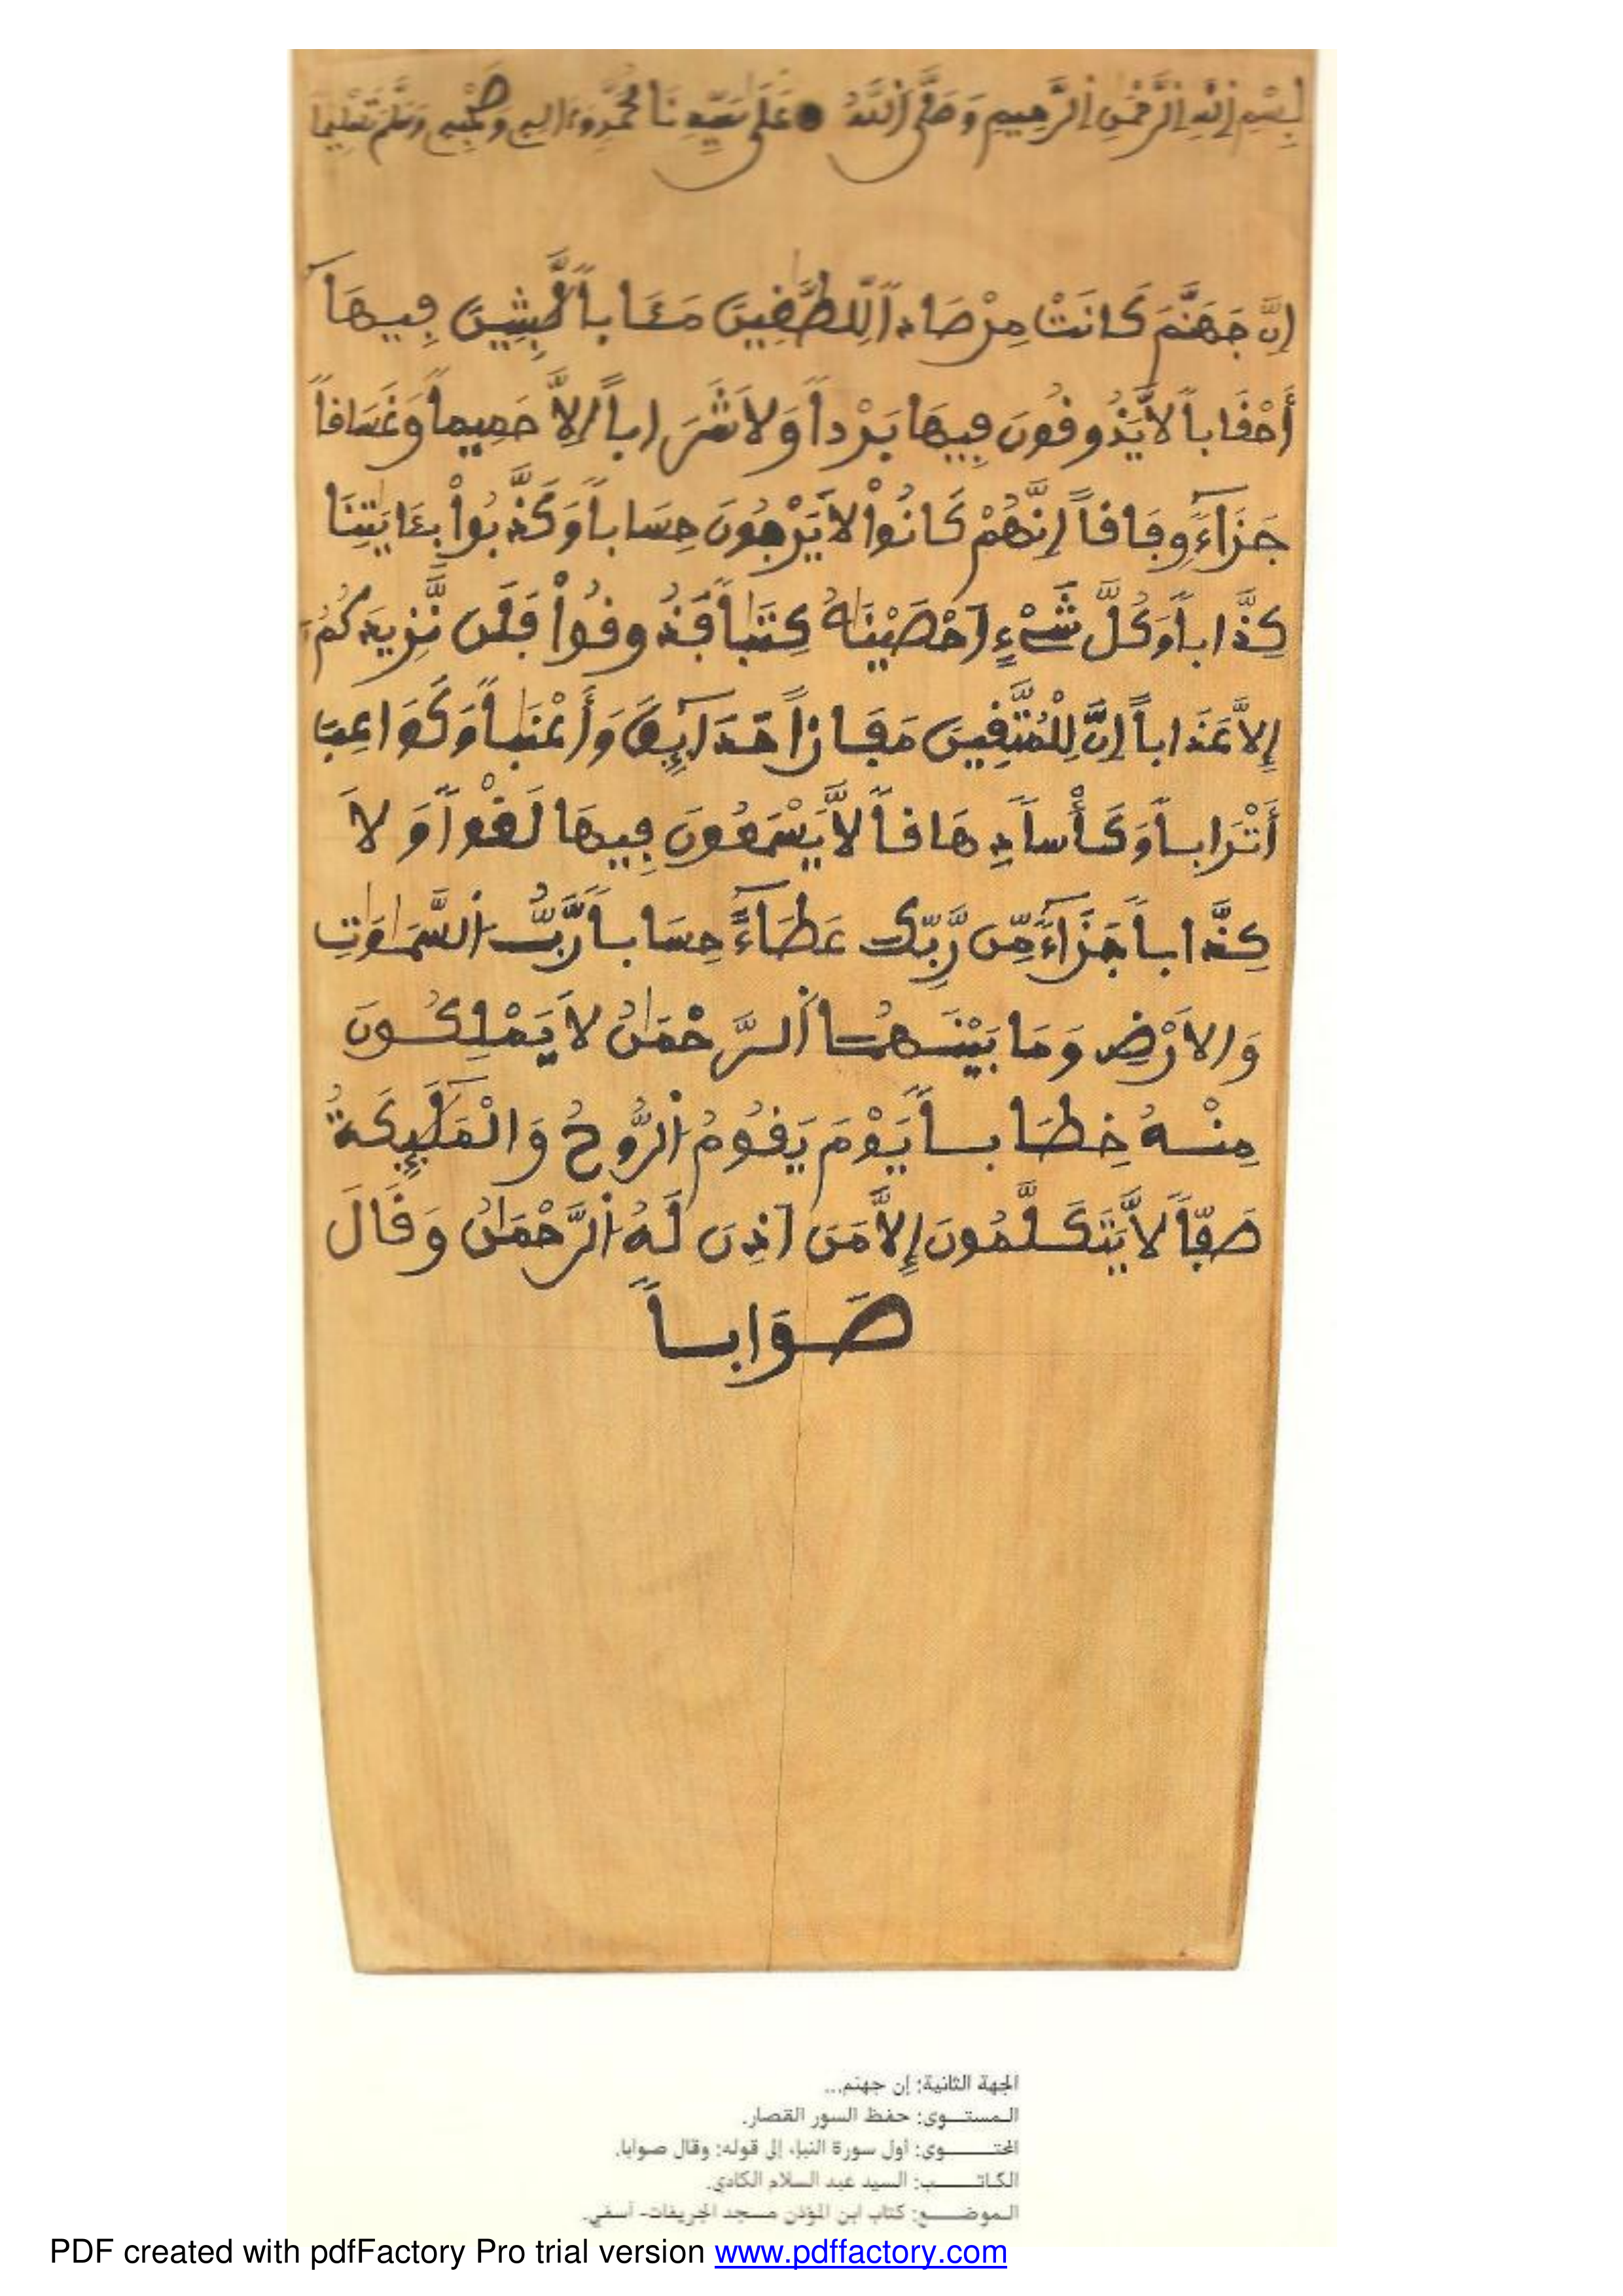 بِسْمِ اِ۬للَّهِ اِ۬لرَّحْمَٰنِ اِ۬لرَّحِيمِ وَصَلَّى اَ۬للَّهُ عَلَى سَيِّدِنَا مُحَمَّدٍ وَءَالِهِ وَصَحْبِهِ وَسَلَّمَ تَسْلِيماً
إِنَّ جَهَنَّمَ كَانَتْ مِرْصَاداً لِّلطَّٰغِينَ مَـَٔاباً لَّٰبِثِينَ فِيهَآ
أَحْقَاباً لَّا يَذُوقُونَ فِيهَا بَرْداً وَلَا شَرَاباً اِلَّا حَمِيماً وَغَسَاقاً
جَزَآءً وِفَاقاً اِنَّهُمْ كَانُواْ لَا يَرْجُونَ حِسَاباً وَكَذَّبُواْ بِـَٔايَٰتِنَا
كِذَّاباً وَكُلَّ شَےْءٍ اَحْصَيْنَٰهُ كِتَٰباً فَذُوقُواْ فَلَن نَّزِيدَكُمُۥٓ
إِلَّا عَذَاباً اِنَّ لِلْمُتَّقِينَ مَفَازاً حَدَآئِقَ وَأَعْنَٰباً وَكَوَاعِبَ
أَتْرَاباً وَكَأْساً دِهَاقاً لَّا يَسْمَعُونَ فِيهَا لَغْواً وَلَا
كِذَّاباً جَزَآءً مِّن رَّبِّكَ عَطَآءً حِسَاباً رَّبُّ اُ۬لسَّمَٰوَٰتِ
وَالَارْضِ وَمَا بَيْنَهُمَا اَ۬لرَّحْمَٰنُ لَا يَمْلِكُونَ
مِنْهُ خِطَاباً يَوْمَ يَقُومُ اُ۬لرُّوحُ وَالْمَلَٰٓئِكَةُ
صَفّاً لَّا يَتَكَلَّمُونَ إِلَّا مَنَ اَذِنَ لَهُ اُ۬لرَّحْمَٰنُ وَقَالَ
صَوَاباً
الجهة الثانية: إن جهنم...
المستــوى: حفظ السور القصار.
المحتــــوى: أول سورة النبإ، إلى قوله: وقال صوابا.
الكاتــــب: السيد عبد السلام الكادي.
الموضــــع: كتاب ابن المؤذن مسجد الجريفات- آسفي.
PDF created with pdfFactory Pro trial version www.pdffactory.com